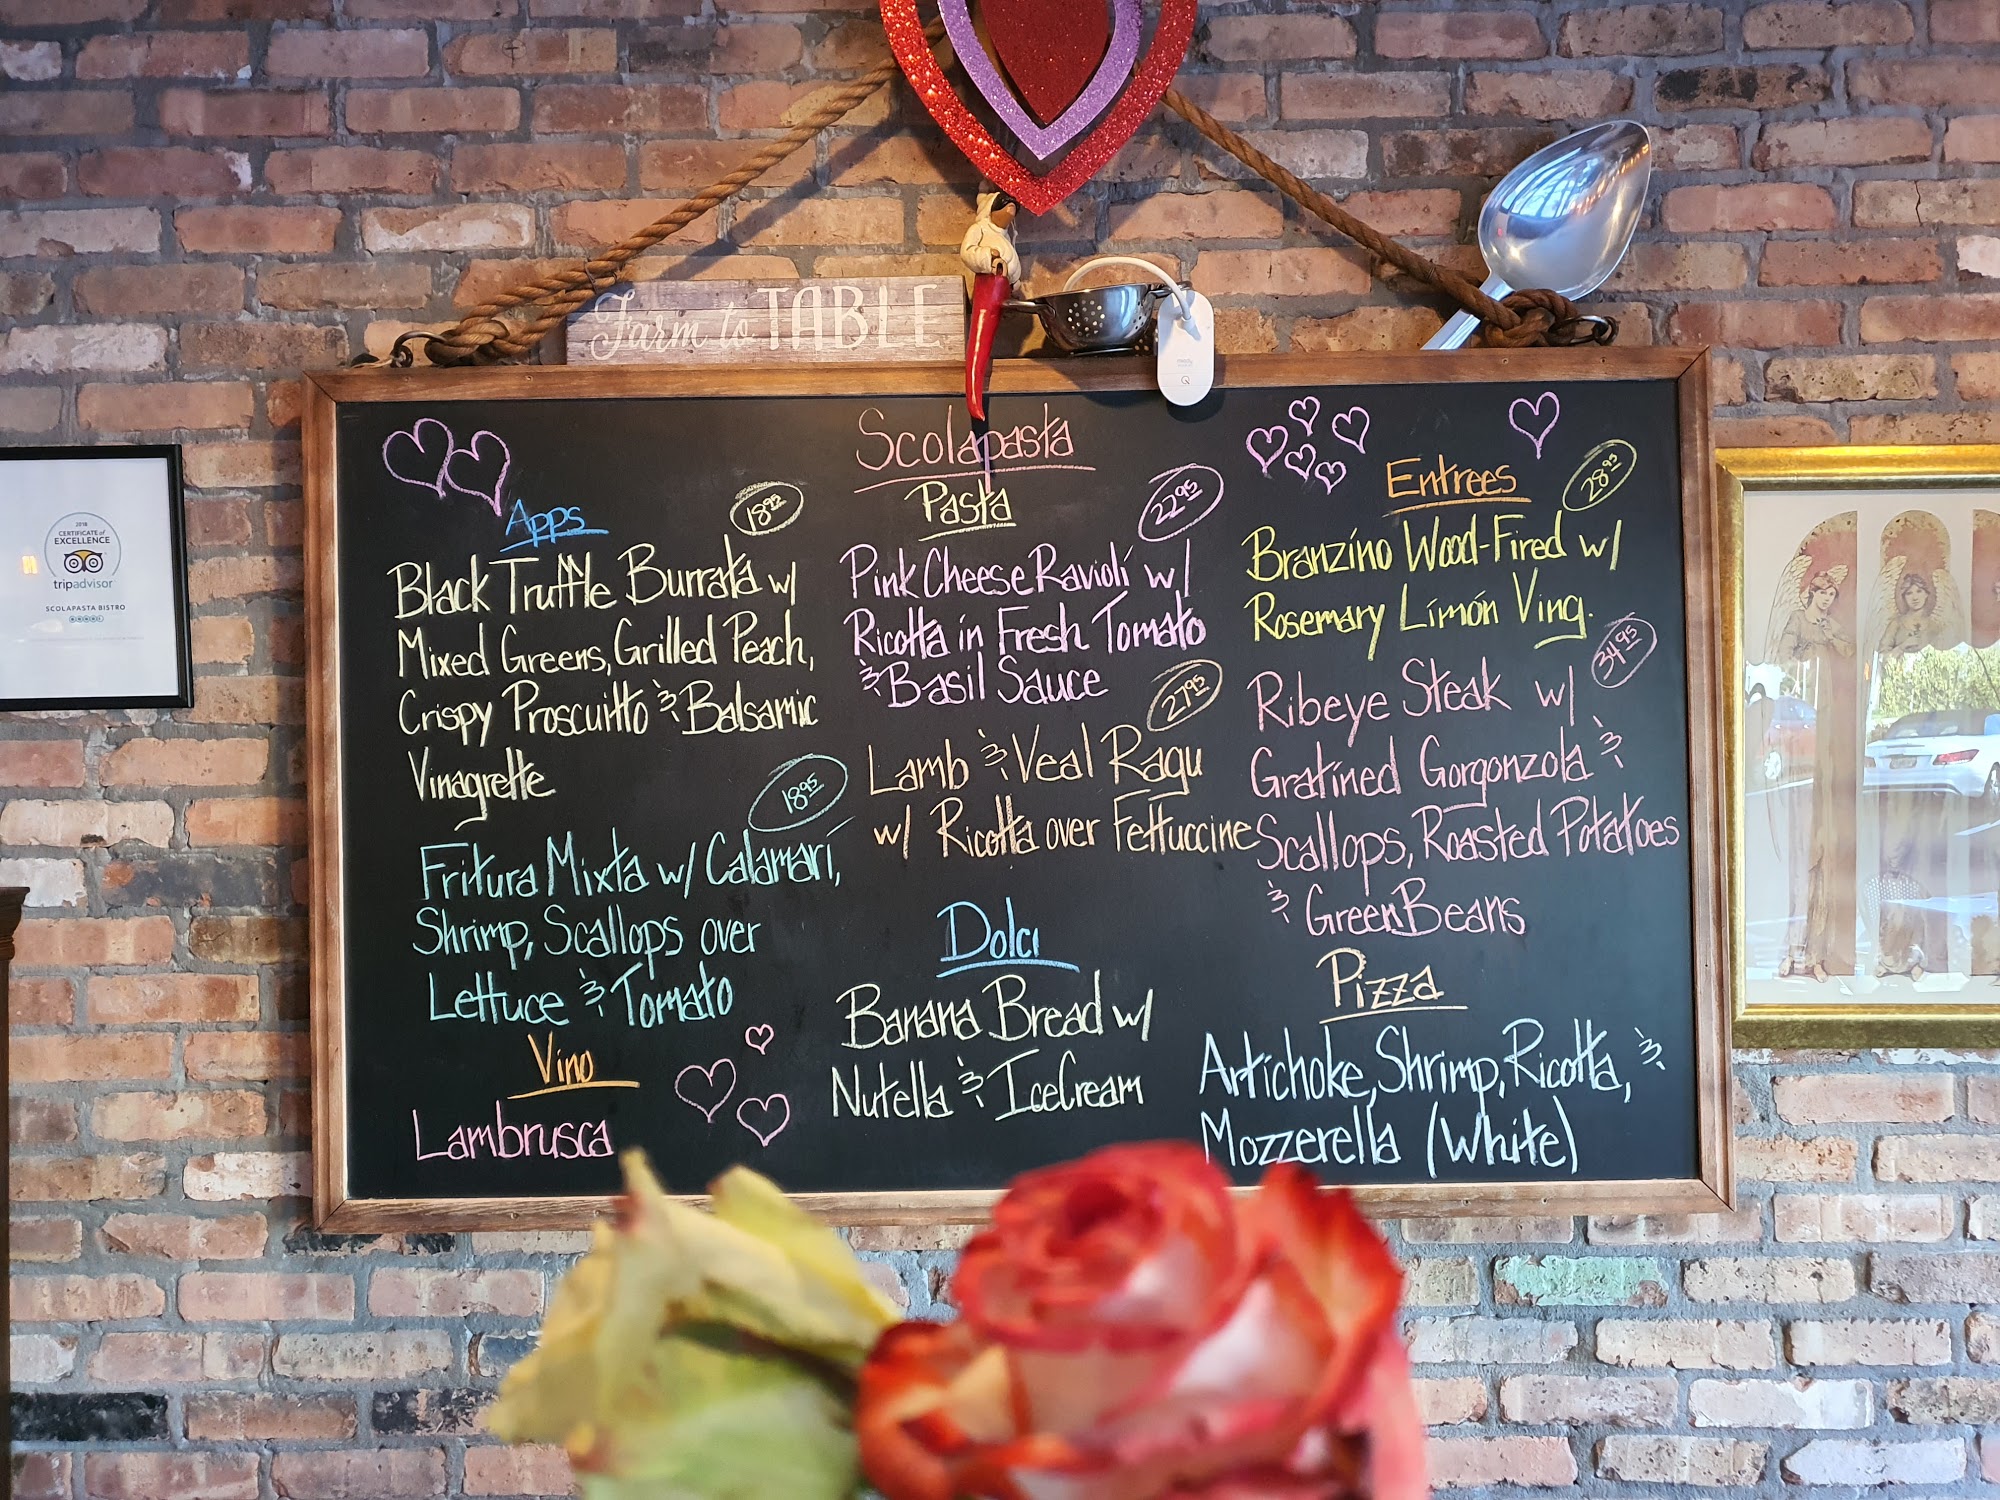 Farm to TABLE
2018
CERTIFICATE of
EXCELLENCE
tripadvisor
SCOLAPASTA BISTRO
Scolapasta
Apps
18.95
Black Truffle Burrata w/
Mixed Greens, Grilled Peach,
Crispy Proscuitto & Balsamic
Vinagrette
18.95
Fritura Mixta w/ Calamari,
Shrimp, Scallops over
Lettuce & Tomato
Vino
Lambrusca
Pasta
22.95
Pink Cheese Ravioli w/
Ricotta in Fresh Tomato
& Basil Sauce
27.95
Lamb & Veal Ragu
w/ Ricotta over Fettuccine
Dolci
Banana Bread w/
Nutella & Ice Cream
Entrees
28.95
Branzino Wood-Fired w/
Rosemary Limón Ving.
34.95
Ribeye Steak w/
Gratined Gorgonzola &
Scallops, Roasted Potatoes
& Green Beans
Pizza
Artichoke, Shrimp, Ricotta, &
Mozzerella (White)